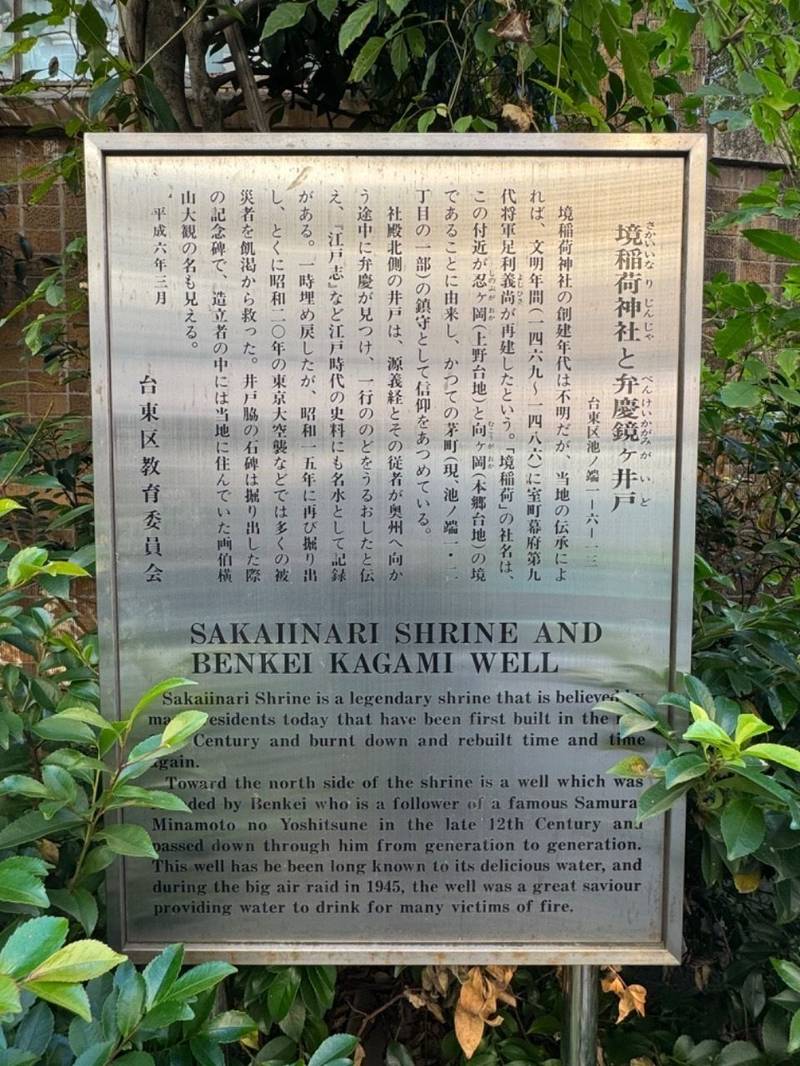 境稲荷神社と弁慶鏡ヶ井戸
さかいいなりじんじゃ べんけいかがみがいど
台東区池ノ端一ー六ー一三
境稲荷神社の創建年代は不明だが、当地の伝承によ
れば、文明年間(一四六九〜一四八六)に室町幕府第九
代将軍足利義尚が再建したという。「境稲荷」の社名は、
よしひさ
この付近が忍ヶ岡(上野台地)と向ヶ岡(本郷台地)の境
しのぶがおか むこうがおか
であることに由来し、かつての茅町(現、池ノ端一・二
丁目の一部)の鎮守として信仰をあつめている。
社殿北側の井戸は、源義経とその従者が奥州へ向か
う途中に弁慶が見つけ、一行ののどをうるおしたと伝
え、『江戸志』など江戸時代の史料にも名水として記録
がある。一時埋め戻したが、昭和一五年に再び掘り出
し、とくに昭和二〇年の東京大空襲などでは多くの被
災者を飢渇から救った。井戸脇の石碑は掘り出した際
の記念碑で、造立者の中には当地に住んでいた画伯横
山大観の名も見える。
平成六年三月
台東区教育委員会
SAKAIINARI SHRINE AND
BENKEI KAGAMI WELL
Sakaiinari Shrine is a legendary shrine that is believed by
residents today that have been first built in the
Century and burnt down and rebuilt time and time
again.
Toward the north side of the shrine is a well which was
by Benkei who is a follower of a famous Samurai
Minamoto no Yoshitsune in the late 12th Century and
passed down through him from generation to generation.
This well has be been long known to its delicious water, and
during the big air raid in 1945, the well was a great saviour
providing water to drink for many victims of fire.